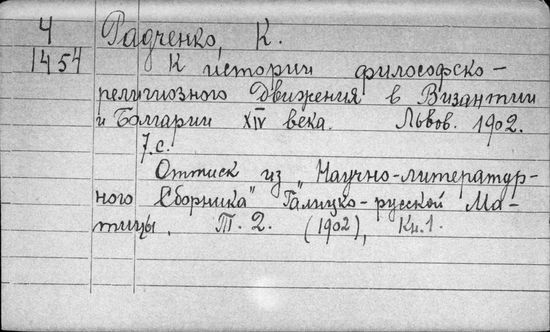 Ч Радченко, К.
1454 К истории философско-
религиозного Движения в Византии
и Болгарии XIV века. Львов. 1902.
7.с.
Оттиск из „Научно-литератур-
ного Сборника" Галицко-русской Ма-
тицы. Т. 2. (1902), Кн.1.